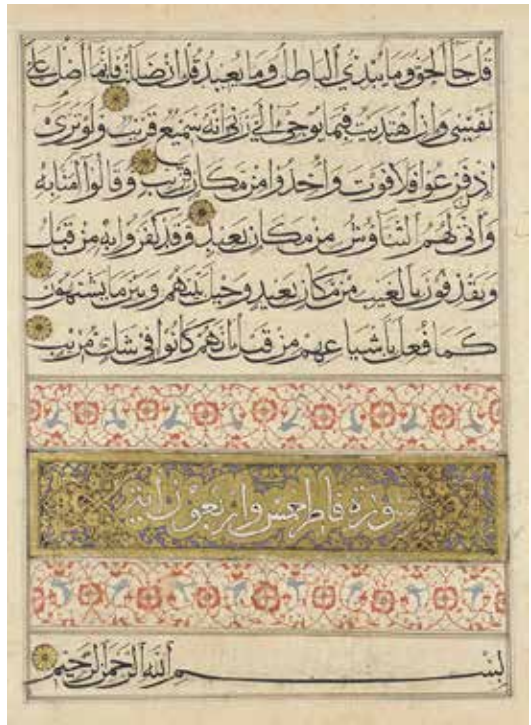 قل جاء الحق وما يبدئ الباطل وما يعيد قل ان ضللت فانما اضل على
نفسي وان اهتديت فبما يوحي الي ربي انه سميع قريب ولو ترى
اذ فزعوا فلا فوت واخذوا من مكان قريب وقالوا امنا به
وانى لهم التناوش من مكان بعيد وقد كفروا به من قبل
ويقذفون بالغيب من مكان بعيد وحيل بينهم وبين ما يشتهون
كما فعل باشياعهم من قبل انهم كانوا في شك مريب
سورة فاطر خمس واربعون اية
بسم الله الرحمن الرحيم